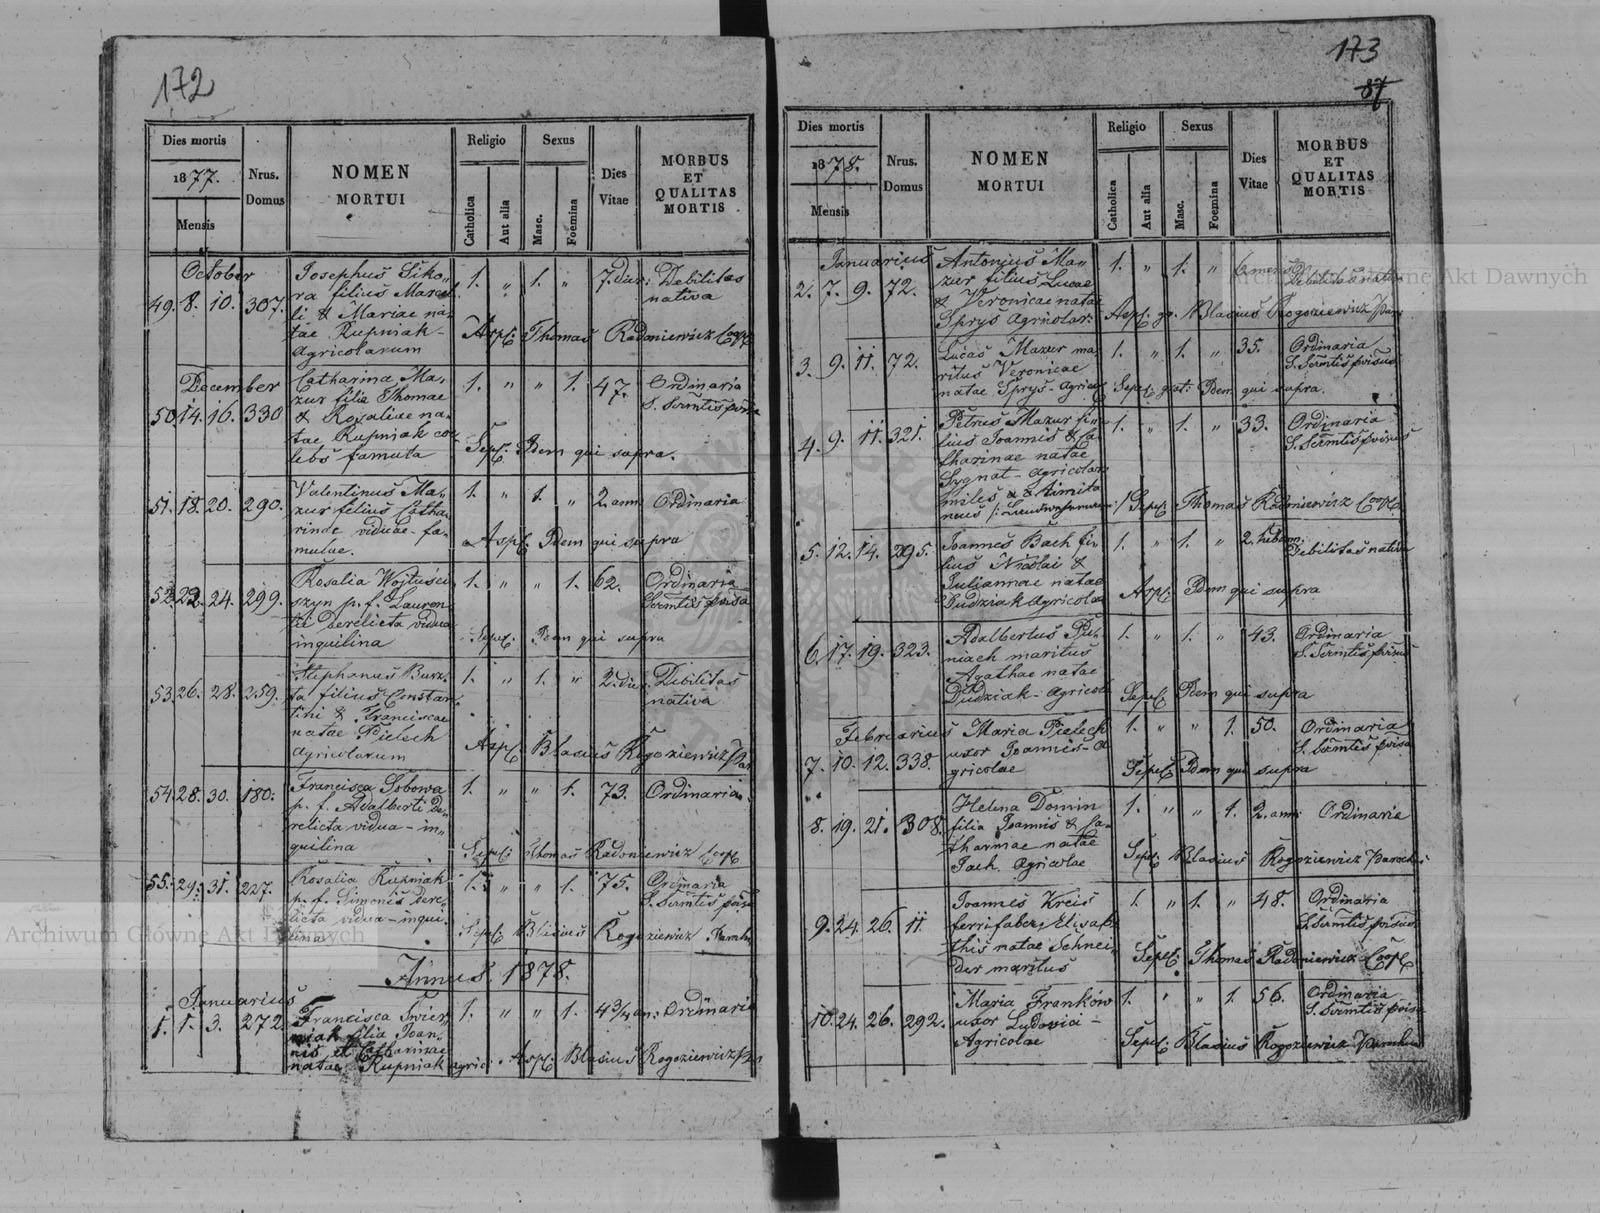 172
Dies mortis
1877.
Mensis
Nrus.
Domus
NOMEN
MORTUI
Religio
Catholica
Aut alia
Sexus
Masc.
Foemina
Dies
Vitae
MORBUS
ET
QUALITAS
MORTIS
October
49. 8. 10. 307.
Josephus Siko„
ra filius Marcel
li & Mariae na„
tae Kupniak -
Agricolarum
1. „ 1. „ 7. dier:
Debilitas
nativa
Aspf: Thomas Radoniewicz Coop
December
50. 14. 16. 330
Catharina Ma„
zur filia Thomae
& Rosaliae na„
tae Kupniak coe
lebs famula
1. „ „ 1. 47.
Ordinaria
Sepf: Idem qui supra.
51. 18. 20. 290.
Valentinus Ma„
zur filius Catha„
rinae viduae - fa„
mulae.
1. „ 1. „ 2. ann
Ordinaria
Aspf: Idem qui supra
52. 22. 24. 299.
Rosalia Wojtuści
szyn p. f. Lauren
tii derelicta vidua
inquilina
1. „ „ 1. 62.
Ordinaria
Sepf: Idem qui supra
53. 26. 28. 259.
Stephanus Burz„
ta filius Constan
tini & Franciscae
natae Pielech
Agricolarum
1. „ 1. „ 2. dier.
Debilitas
nativa
Aspf: Blasius Rogoziewicz Par
54. 28. 30. 180.
Francisca Sobowa
p. f. Adalberti De„
relicta vidua - in„
quilina
1. „ „ 1. 73. Ordinaria.
Sepf: Thomas Radoniewicz Coop
55. 29. 31. 227.
Rosalia Kupniak
p. f. Simonis dere„
licta vidua - inqui
lina
1. „ „ 1. 75.
Ordinaria
Sepf: Blasius Rogoziewicz Paroch
Annus. 1878.
Januarius
1. 1. 3. 272.
Francisca Świer„
niak filia Joan„
nis et Catharinae
natae Kupniak agric.
1. „ „ 1. 4 3/4 an: Ordinaria
Aspf: Blasius Rogoziewicz Par
173
87
Dies mortis
1878.
Mensis
Nrus.
Domus
NOMEN
MORTUI
Religio
Catholica
Aut alia
Sexus
Masc.
Foemina
Dies
Vitae
MORBUS
ET
QUALITAS
MORTIS
Januarius
2. 7. 9. 72.
Antonius Ma„
zur filius Lucae
& Veronicae natae
Sprys Agricolar:
1. „ 1. „ 6 mens
Debilitas nativa
Aspf: gr. Blasius Rogoziewicz Par
3. 9. 11. 72.
Lucas Mazur ma„
ritus Veronicae
natae Sprys - Agricol
1. „ 1. „ 35.
Ordinaria
Sepf: grat: Idem qui supra.
4. 9. 11. 321.
Petrus Mazur fi„
lius Joannis & Ca„
tharinae natae
Sygnat - Agricolar
miles
1. „ 1. „ 33.
Ordinaria
Sepf: Thomas Radoniewicz Coop
5. 12. 14. 295.
Joannes Bach fi„
lius Nicolai &
Juliannae natae
Dudziak Agricolar
1. „ 1. „ 2. hebdom:
Debilitas nativa
Aspf: Idem qui supra
6. 17. 19. 323.
Adalbertus Pu„
niach maritus
Agathae natae
Dudziak - Agricol
1. „ 1. „ 43.
Ordinaria
Sepf: Idem qui supra
Februarius
7. 10. 12. 338.
Maria Pielech
uxor Joannis - A
gricolae
1. „ „ 1. 50.
Ordinaria
Sepf: Idem qui supra
8. 19. 21. 308.
Helena Domin
filia Joannis & Ca„
tharinae natae
Pach. Agricolae
1. „ „ 1. 2. ann: Ordinaria
Sepf: Blasius Rogoziewicz Parochus
9. 24. 26. 11.
Joannes Kreis
ferrifaber, Elisabe
this natae Schnei„
der maritus
1. „ 1. „ 48.
Ordinaria
Sepf: Thomas Radoniewicz Coop
10. 24. 26. 292.
Maria Franków
uxor Ludovici -
Agricolae
1. „ „ 1. 56.
Ordinaria
Sepf: Blasius Rogoziewicz Parochus
Archiwum Główne Akt Dawnych
Archiwum Główne Akt Dawnych